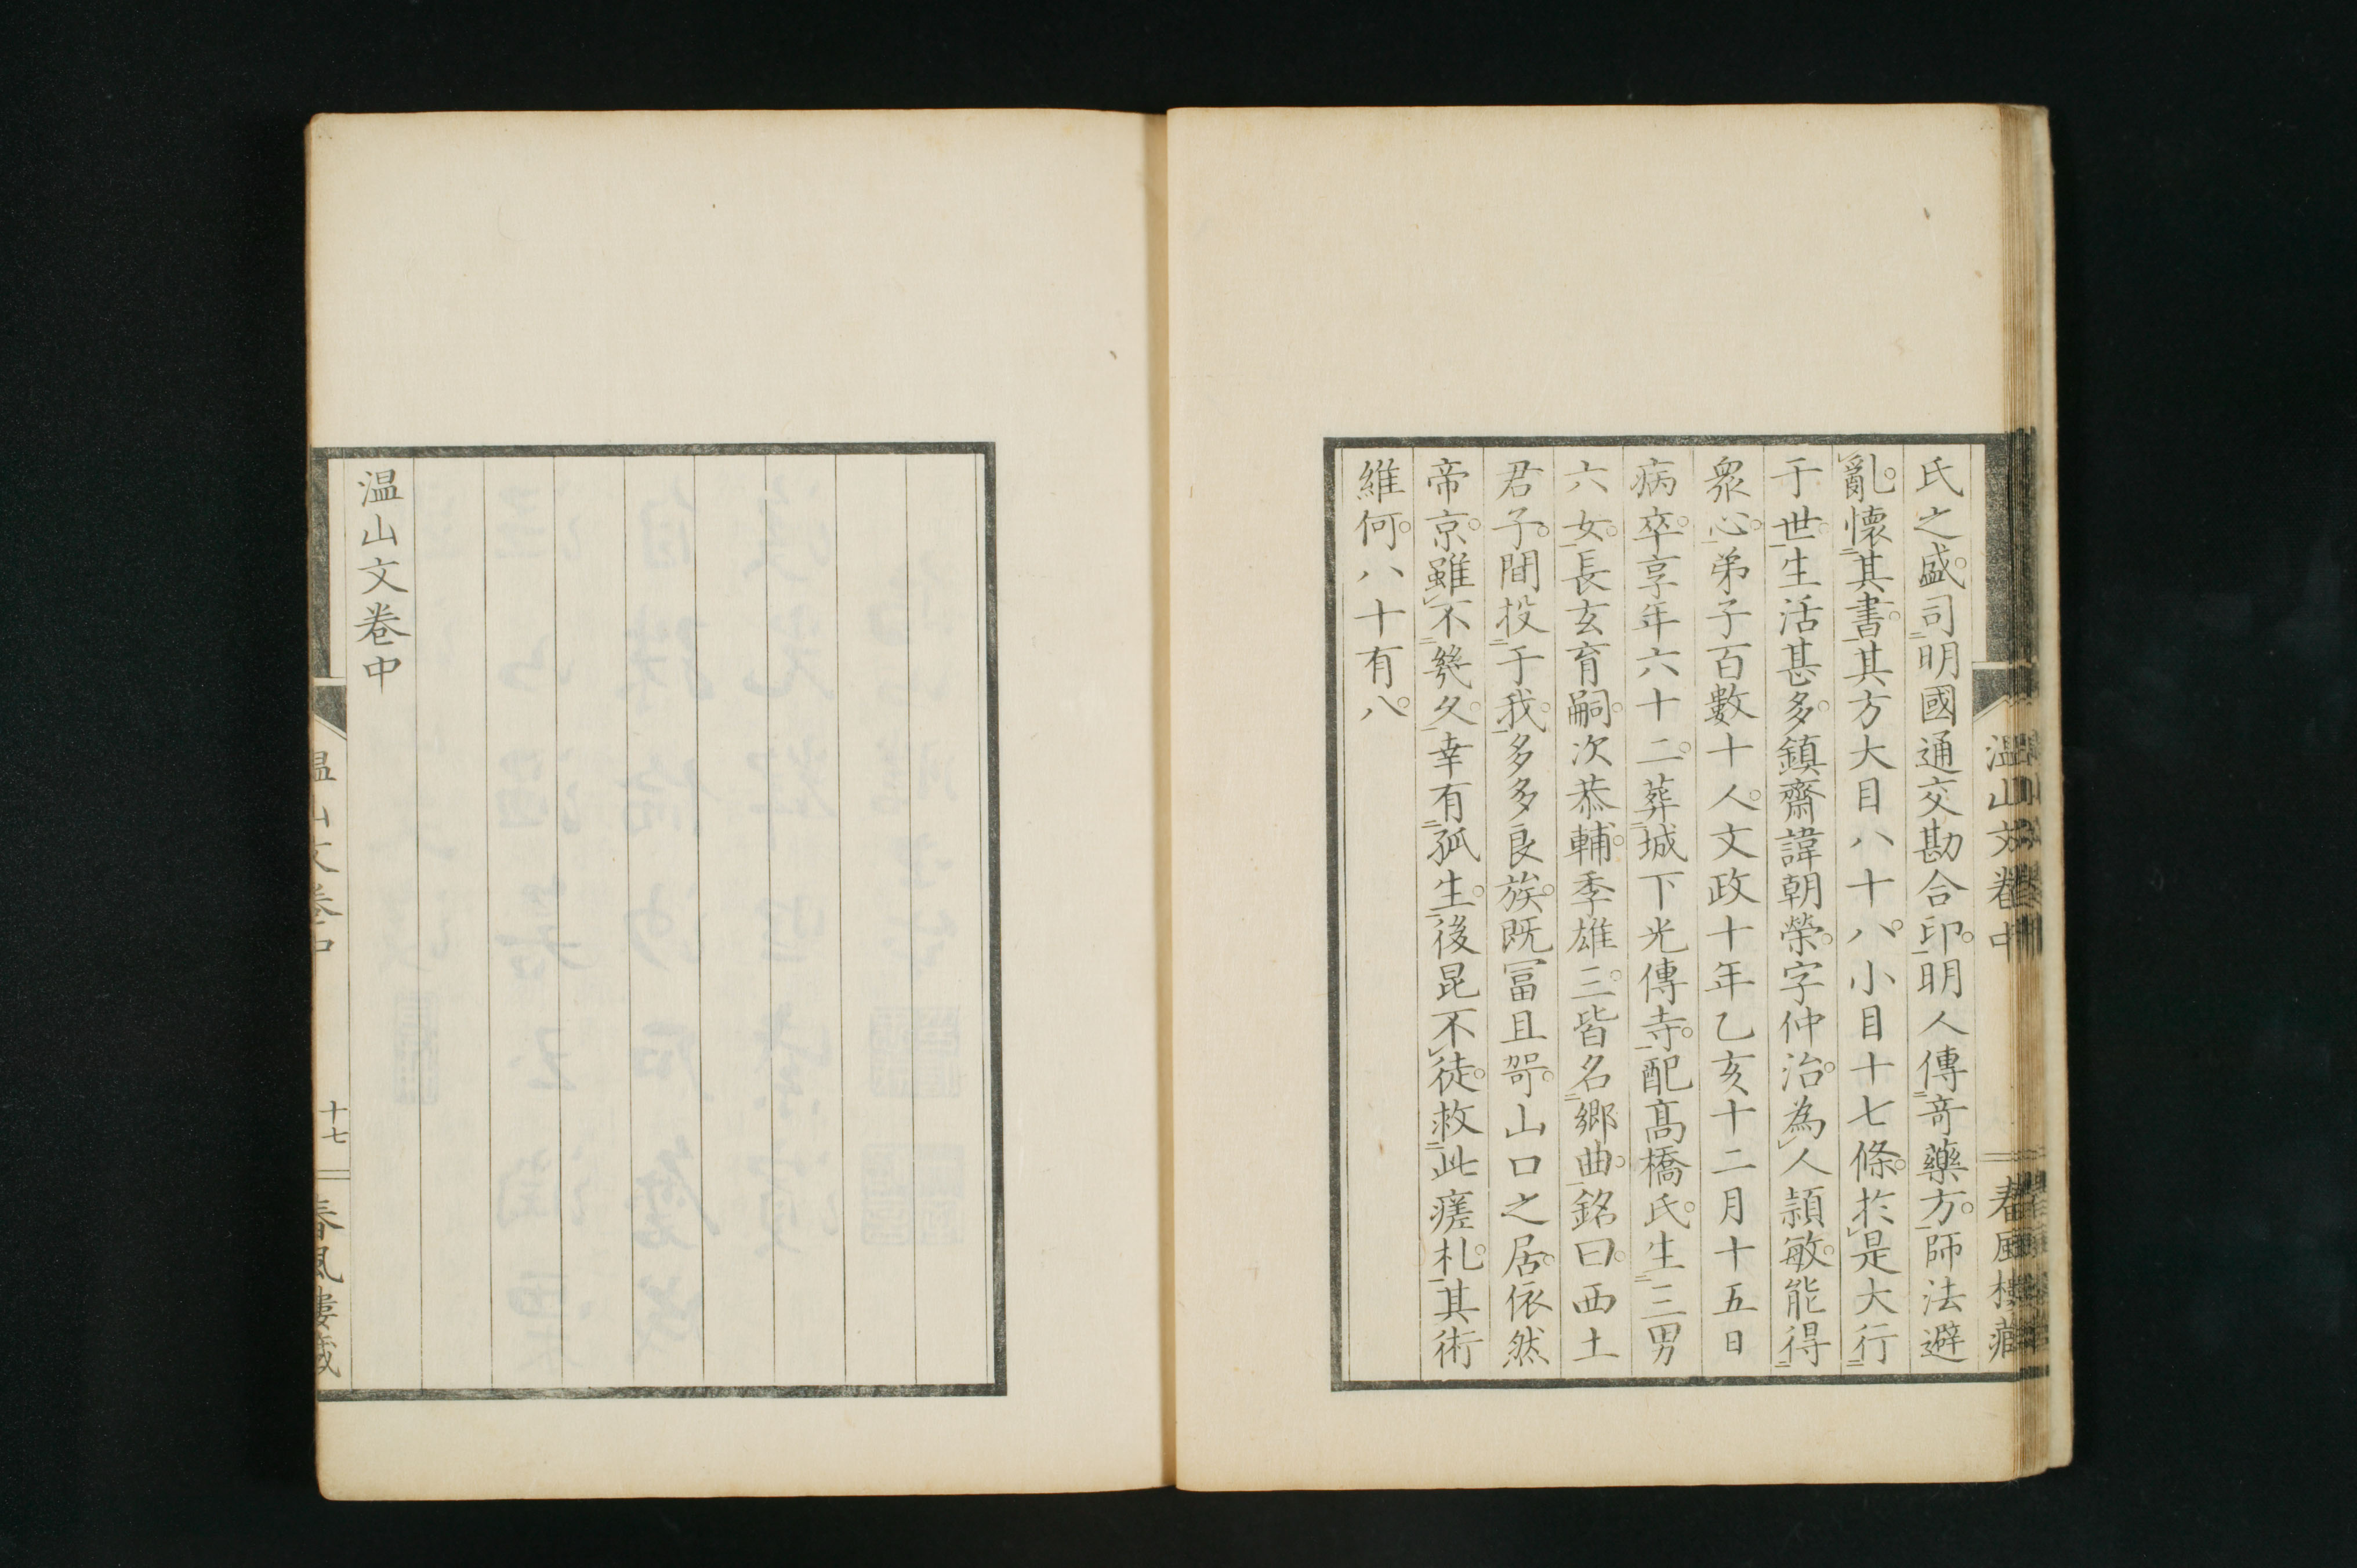 氏之盛。司明國通交勘合印。明人傳奇藥方。師法避
亂。懷其書。其方大目八十八。小目十七條。於是大行
于世。生活甚多。鎮齋諱朝榮。字仲治。為人頴敏。能得
衆心。弟子百數十人。文政十年乙亥十二月十五日
病卒。享年六十二。葬城下光傳寺。配髙橋氏。生三男
六女。長玄育嗣。次恭輔。季雄三。皆名鄉曲。銘曰。西土
君子。間投于我。多多良族。既冨且哿。山口之居。依然
帝京。雖不幾久。幸有孤生。後昆不徒。救此瘥札。其術
維何。八十有八。
温山文卷中
春風樓藏
温山文卷中
温山文卷中
十七
春風樓藏